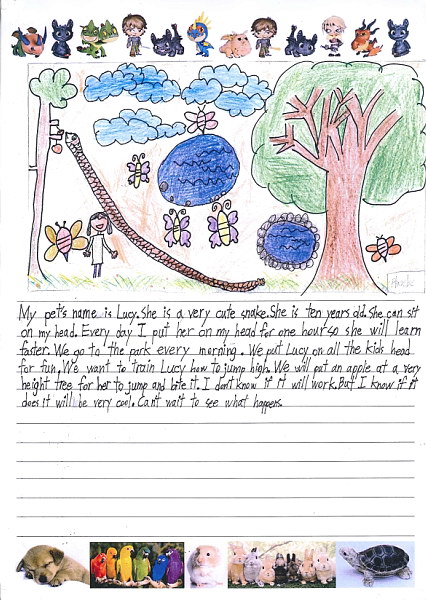 My pet's name is Lucy. She is a very cute snake. She is ten years old. She can sit
on my head. Every day I put her on my head for one hour so she will learn
faster. We go to the park every morning. We put Lucy on all the kids head
for fun. We want to train Lucy how to jump high. We will put an apple at a very
height tree for her to jump and bite it. I don't know if it will work. But I know if it
does it will be very cool. Can't wait to see what happens.